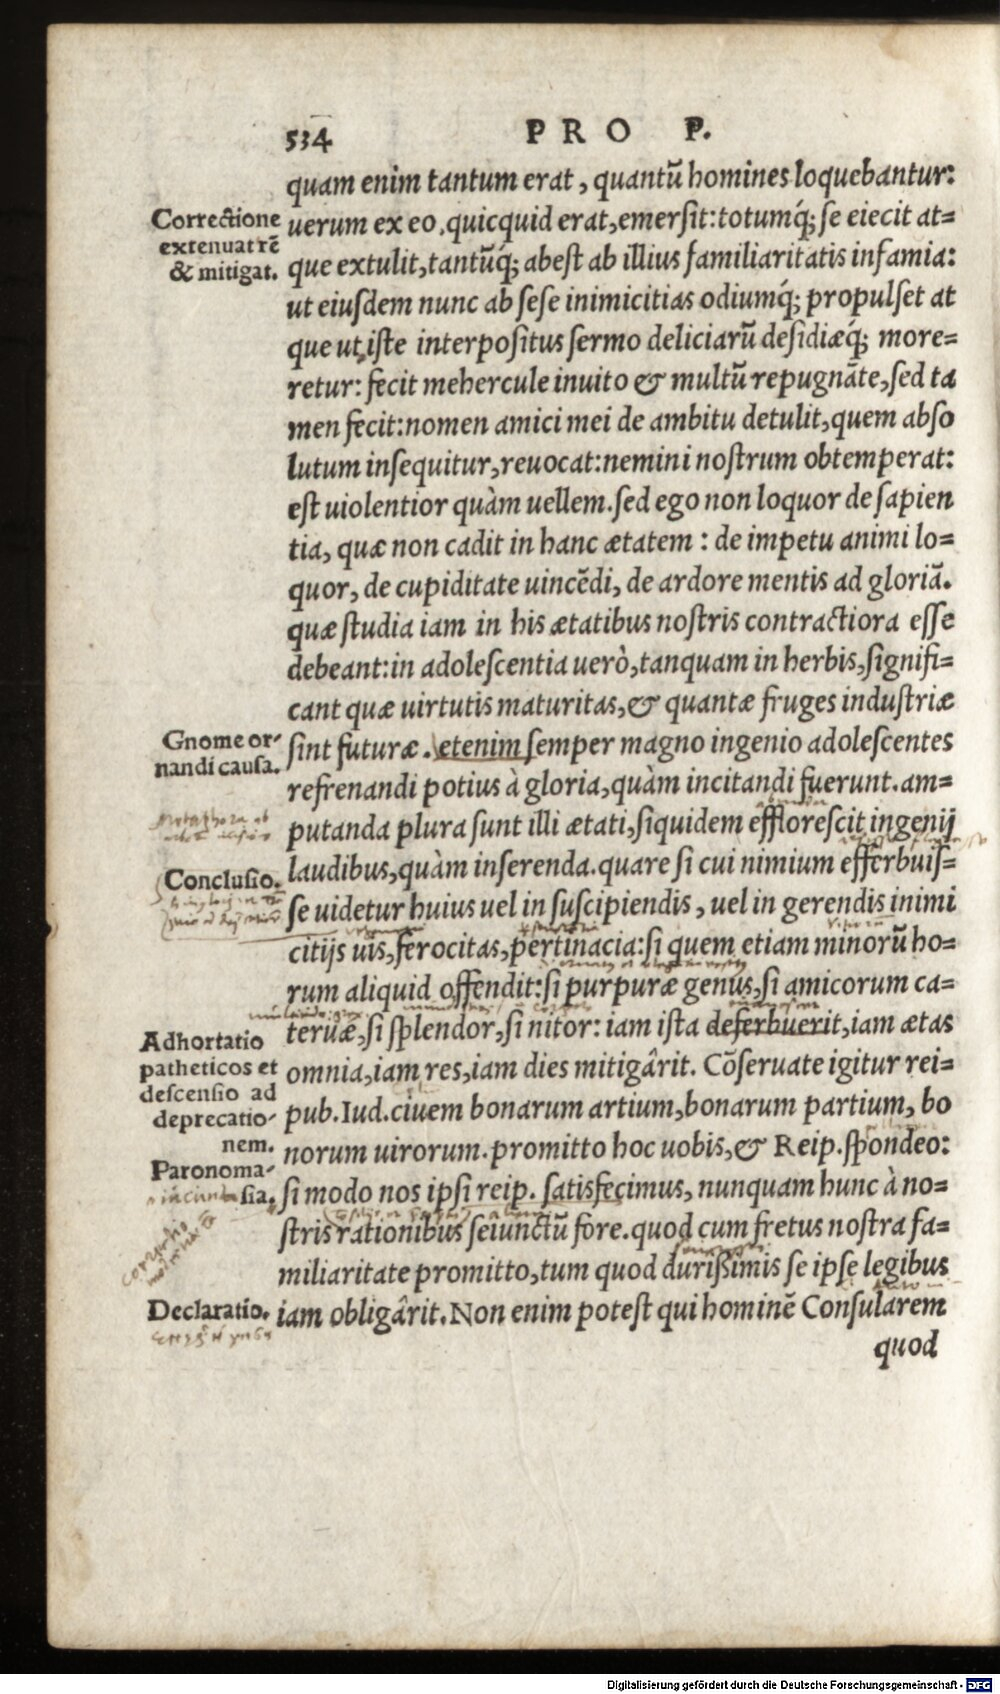 534 PRO P.
quam enim tantum erat, quantũ homines loquebantur:
Correctione
extenuat rẽ
& mitigat.
uerum ex eo, quicquid erat, emersit: totumq́; se eiecit at=
que extulit, tantũq́; abest ab illius familiaritatis infamia:
ut eiusdem nunc ab sese inimicitias odiumq́; propulset at
que ut iste interpositus sermo deliciarũ desidiæq́; more=
retur: fecit mehercule inuito & multũ repugnãte, sed ta
men fecit: nomen amici mei de ambitu detulit, quem abso
lutum insequitur, reuocat: nemini nostrum obtemperat:
est uiolentior quàm uellem. sed ego non loquor de sapien
tia, quæ non cadit in hanc ætatem: de impetu animi lo=
quor, de cupiditate uincẽdi, de ardore mentis ad gloriã.
quæ studia iam in his ætatibus nostris contractiora esse
debeant: in adolescentia uerò, tanquam in herbis, signifi=
cant quæ uirtutis maturitas, & quantæ fruges industriæ
Gnome or-
nandi causa.
sint futuræ. etenim semper magno ingenio adolescentes
refrenandi potius à gloria, quàm incitandi fuerunt. am=
putanda plura sunt illi ætati, siquidem efflorescit ingenij
Conclusio.
laudibus, quàm inserenda. quare si cui nimium efferbuis=
se uidetur huius uel in suscipiendis, uel in gerendis inimi
citijs uis, ferocitas, pertinacia: si quem etiam minorũ ho=
rum aliquid offendit: si purpuræ genus, si amicorum ca=
Adhortatio
patheticos et
descensio ad
deprecatio-
nem.
Paronoma-
sia.
teruæ, si splendor, si nitor: iam ista deferbuerit, iam ætas
omnia, iam res, iam dies mitigârit. Cõseruate igitur rei=
pub. Iud. ciuem bonarum artium, bonarum partium, bo
norum uirorum. promitto hoc uobis, & Reip. spondeo:
si modo nos ipsi reip. satisfecimus, nunquam hunc à no=
stris rationibus seiunctũ fore. quod cum fretus nostra fa=
miliaritate promitto, tum quod durissimis se ipse legibus
Declaratio.
iam obligârit. Non enim potest qui hominẽ Consularem
quod
Digitalisierung gefördert durch die Deutsche Forschungsgemeinschaft - DFG